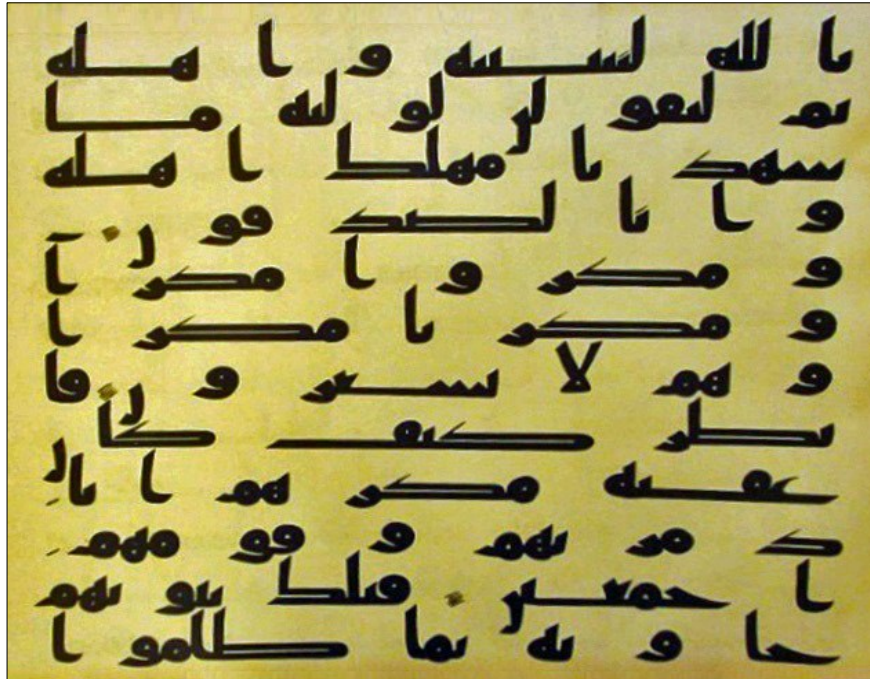 بالله لنبيتنه وأهله
ثم لنقولن لوليه ما
شهدنا مهلك أهله
وإنا لصدقون
ومكروا مكرا
ومكرنا مكرا
وهم لا يشعرون فا
نظر كيف كان
عقبة مكرهم أنا
دمرنهم وقومهم
أجمعين فتلك بيوتهم
خاوية بما ظلموا